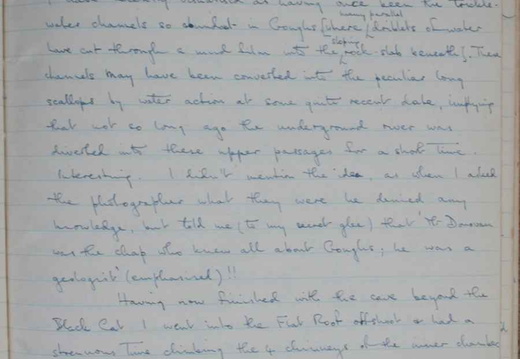 as having once been the trickle-
many parallel
water channels so abundant in Goughs [where driblets of water
sloping
have cut through a mud film into the rock-slab beneath]. These
channels may have been converted into the peculiar long
scallops by water action at some quite recent date, implying
that not so long ago the underground river was
diverted into these upper passages for a short time.
Interesting. I didn't mention the idea, as when I asked
the photographer what they were he denied any
knowledge, but told me (to my secret glee) that 'Mr
was the chap who knew all about Goughs; he was a
geologist' (emphasised)!!
Having now finished with the cave beyond the
Black Cat I went into the Flat Roof offshoot & had a
strenuous time climbing the 4 chimneys of the inner chamber